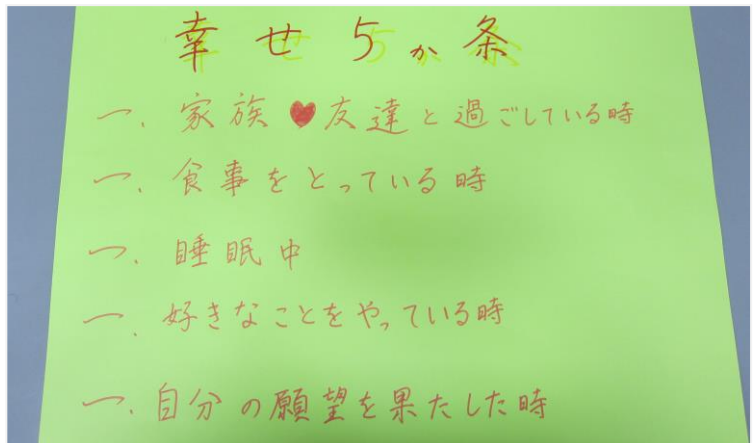 幸せ5か条
一、家族♥友達と過ごしている時
一、食事をとっている時
一、睡眠中
一、好きなことをやっている時
一、自分の願望を果たした時